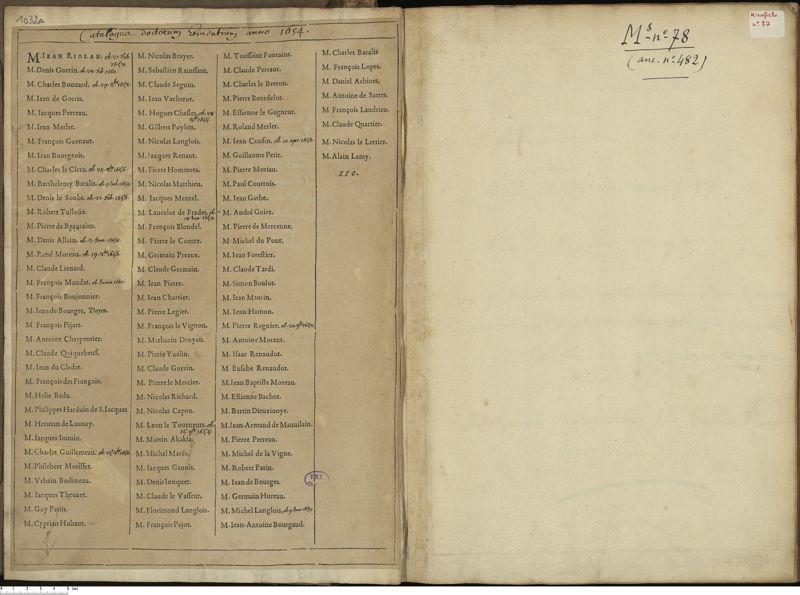 1032a
Catalogus doctorum anno 1654.
M. IEAN RIOLAN.
M. Denis Guerin.
M. Charles Bouuard.
M. Iean de Gorris.
M. Iacques Perreau.
M. Iean Merlet.
M. François Guenaut.
M. Iean Bourgeois.
M. Charles le Clerc.
M. Barthelemy Baralis.
M. Denis le Soubs.
M. Robert Tullouë.
M. Pierre de Beaurains.
M. Denis Allain.
M. René Moreau.
M. Claude Lienard.
M. François Mandat.
M. François Boujonnier.
M. Iean de Bourges, Doyen.
M. François Pijart.
M. Antoine Charpentier.
M. Claude Quiquebeuf.
M. Iean du Cledat.
M. François des François.
M. Helie Beda.
M. Philippes Harduin de S. Iacques
M. Herman de Launay.
M. Iacques Iouuin.
M. Charles Guillemeau.
M. Philebert Morisset.
M. Vrbain Bodineau.
M. Iacques Theuart.
M. Guy Patin.
M. Cyprian Hubaut.
M. Nicolas Brayer.
M. Sebastien Rainssant.
M. Claude Seguin.
M. Iean Vacherot.
M. Hugues Chasles.
M. Gilbert Puylon.
M. Nicolas Langlois.
M. Iacques Renaut.
M. Pierre Hommets.
M. Nicolas Matthieu.
M. Iacques Mentel.
M. Lancelot de Frades.
M. François Blondel.
M. Pierre le Comte.
M. Germain Preaux.
M. Claude Germain.
M. Iean Pietre.
M. Iean Chartier.
M. Pierre Legier.
M. François le Vignon.
M. Mathurin Denyau.
M. Pierre Yuelin.
M. Claude Guerin.
M. Pierre le Mercier.
M. Nicolas Richard.
M. Nicolas Capon.
M. Leon le Tourneurs.
M. Martin Akakia.
M. Michel Marés.
M. Iacques Gauois.
M. Denis Ionquet.
M. Claude le Vasseur.
M. Florimond Langlois.
M. François Pajot.
M. Toussaint Fontaine.
M. Claude Perraut.
M. Charles le Breton.
M. Pierre Bourdelot.
M. Estienne le Gagneur.
M. Roland Merlet.
M. Iean Cousin.
M. Guillaume Petit.
M. Pierre Moriau.
M. Paul Courtois.
M. Iean Garbe.
M. André Guiet.
M. Pierre de Mercenne.
M Michel du Pont.
M. Iean Forestier.
M. Claude Tardi.
M. Simon Boulot.
M. Iean Maurin.
M. Iean Hamon.
M. Pierre Regnier.
M. Antoine Morant.
M. Isaac Renaudot.
M Eusebe Renaudot.
M. Iean Baptiste Moreau.
M. Estienne Bachot.
M. Bertin Dieuxiuoye.
M. Iean-Armand de Mauuilain.
M. Pierre Perreau.
M. Michel de la Vigne.
M. Robert Patin.
M. Iean de Bourges.
M. Germain Hureau.
M. Michel Langlois.
M. Iean-Antoine Bourgaud.
M. Charles Baralis
M. François Lopes.
M Daniel Arbinet.
M. Antoine de Sarret.
M François Landrieu.
M. Claude Quartier.
M. Nicolas le Lettier.
M. Alain Lamy.
110.
Ms. n° 78
(anc. n° 482)
Microfiche
n° 87